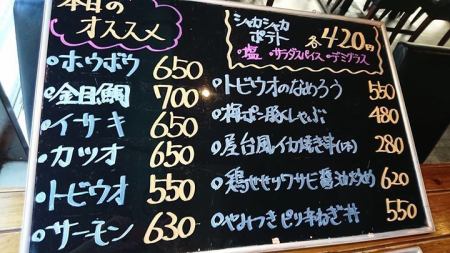 本日の
オススメ
・ホウボウ 650
・金目鯛 700
・イサキ 650
・カツオ 650
・トビウオ 550
・サーモン 630
シャカシャカ
ポテト 各420円
・塩 ・サラダスパイス ・デミグラス
・トビウオのなめろう 550
・梅ポン豚しゃぶ 480
・屋台風イカ焼き串(1本) 280
・鶏せせりワサビ醤油炒め 620
・やみつきピリ辛ねぎ丼 550